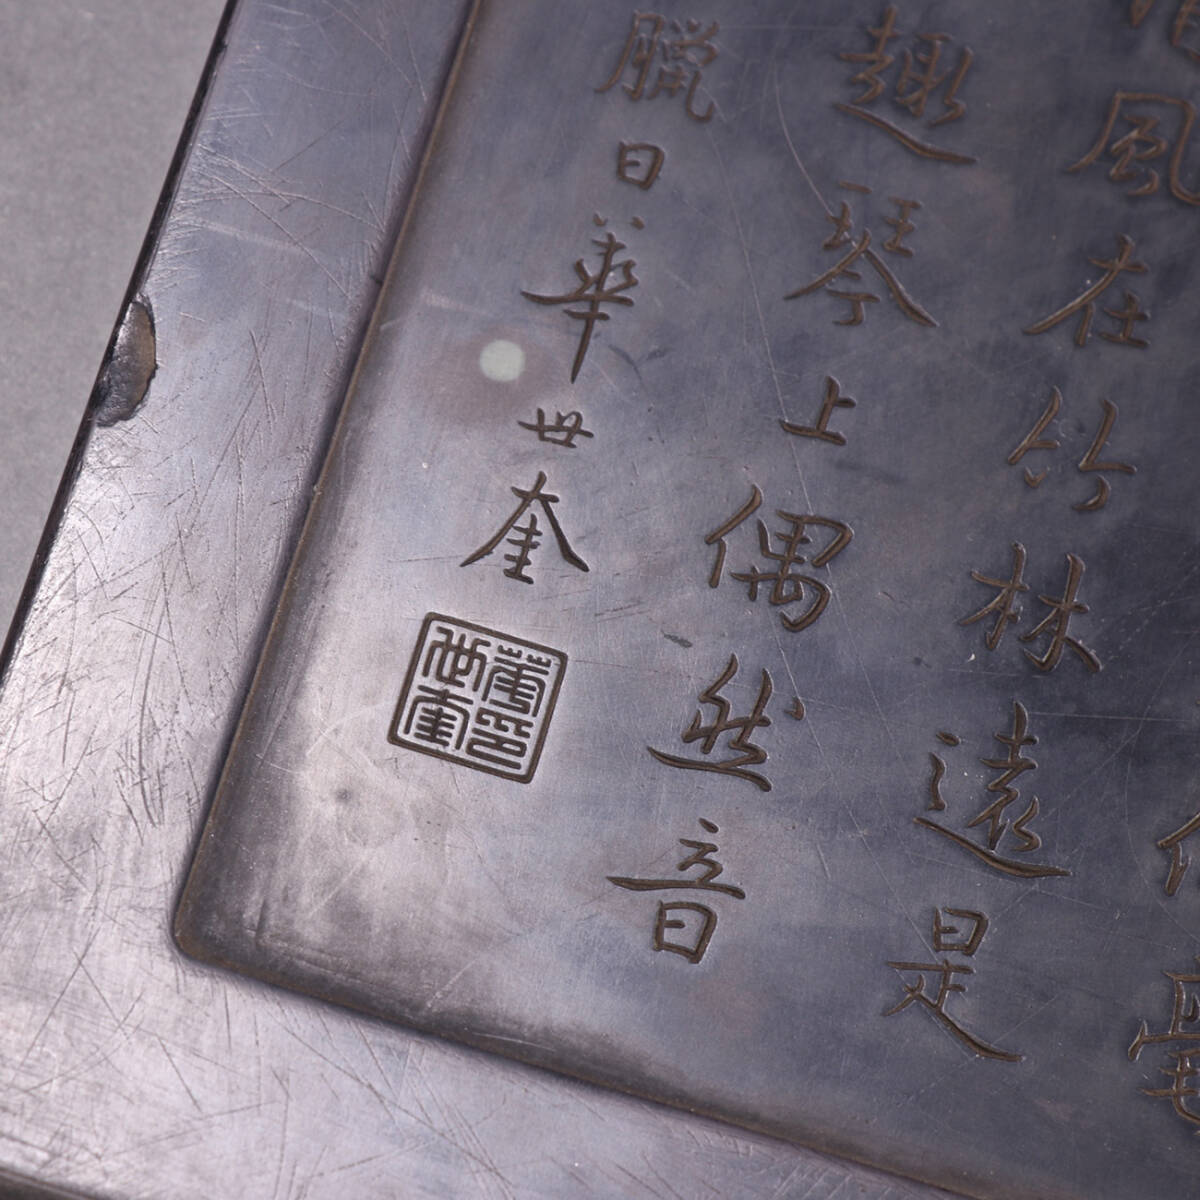 風在竹林遠是
趣琴上偶然音
臘日華世奎
華世奎印